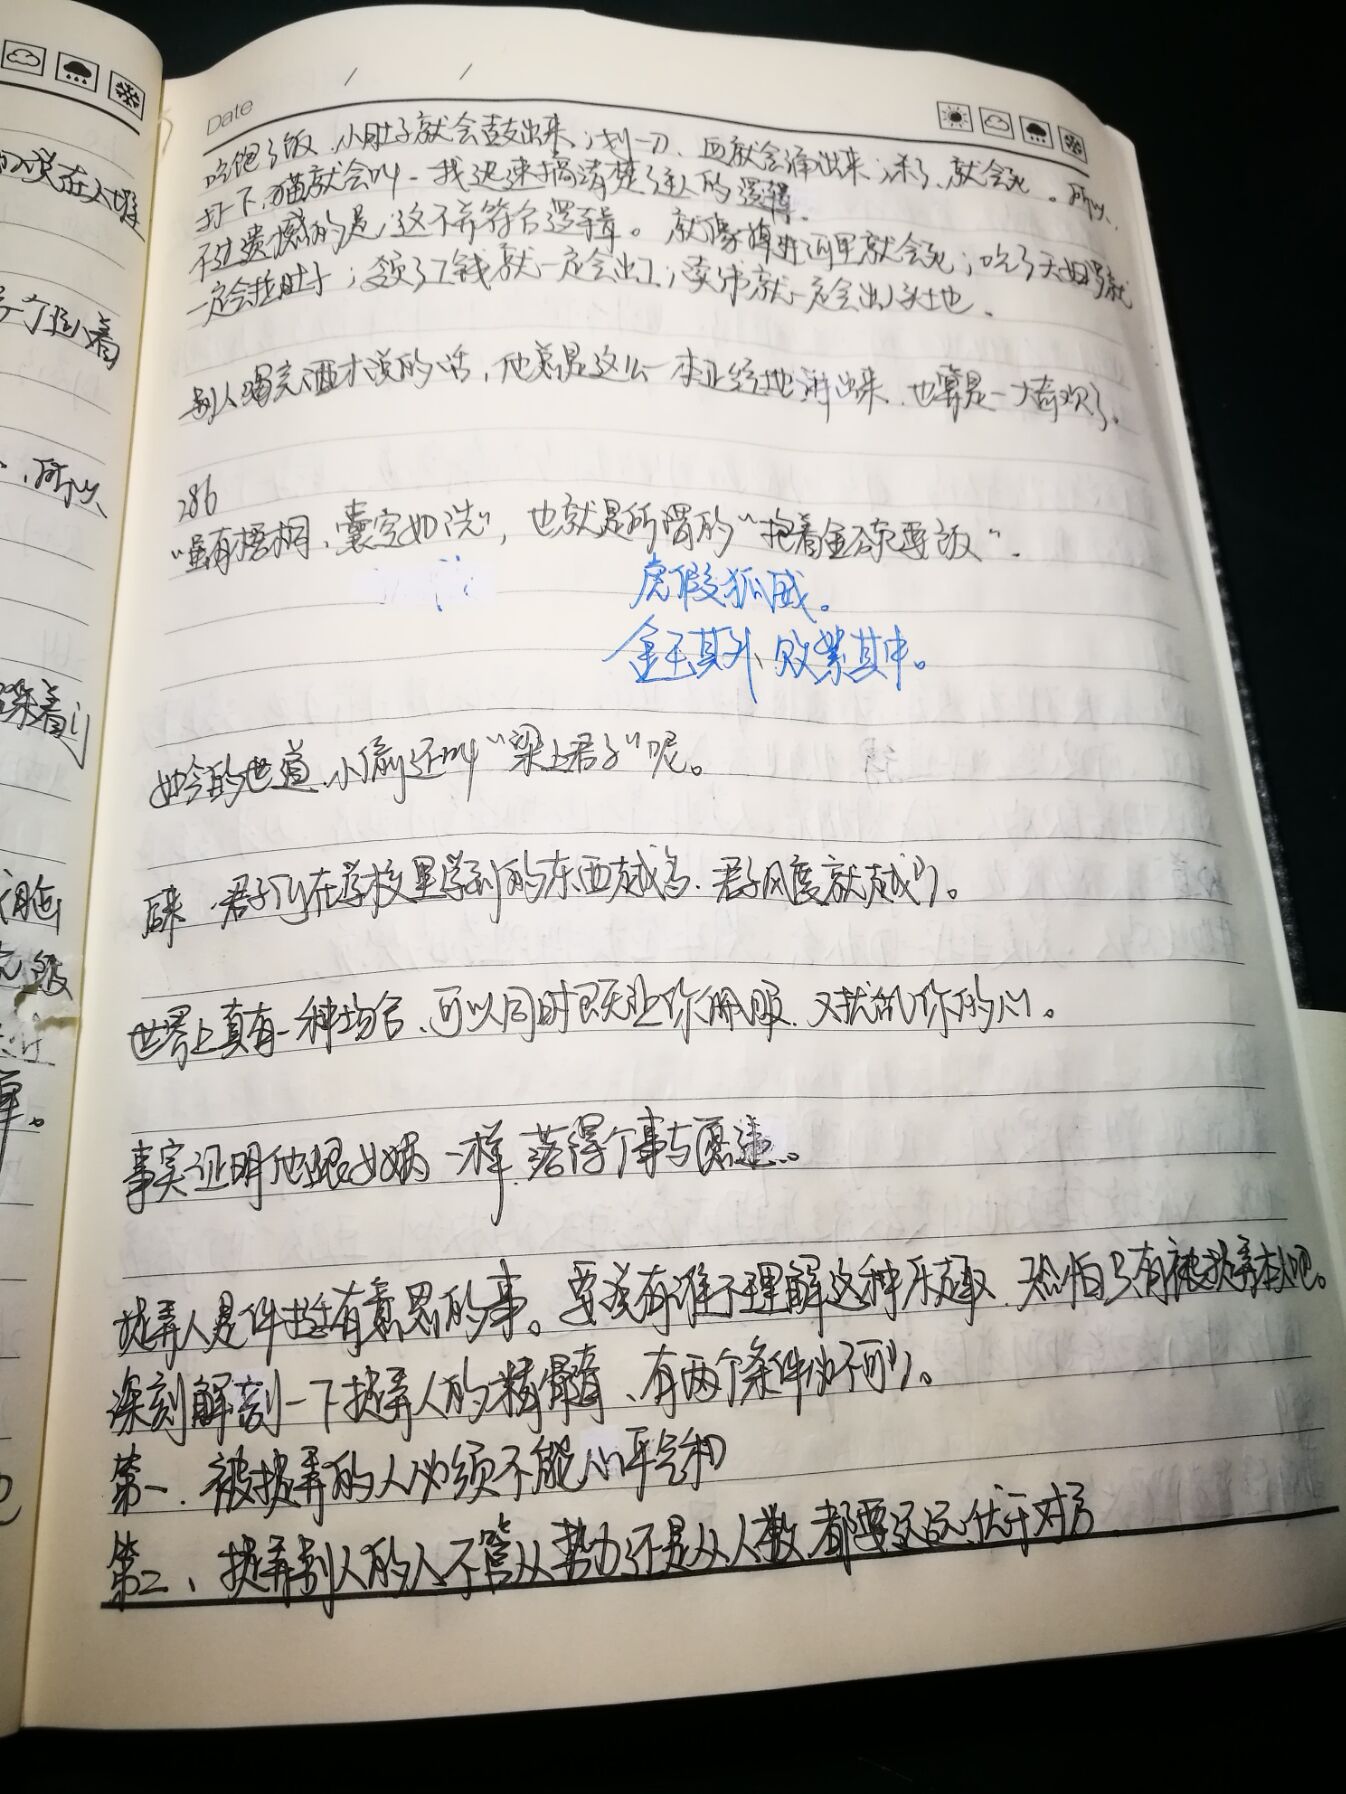 Date / /
吃饱了饭、小肚子就会鼓出来；划一刀、血就会涌出来；杀了、就会死。所以、
打一下、猫就会叫-我迅速搞清楚了主人的逻辑。
不过遗憾的是，这不符合逻辑。就像掉进河里就会死；吃了天妇罗就
一定会拉肚子；领了工钱就一定会出工；读书就一定会出人头地。
别人喝完酒才说的话，他总是这么一本正经地讲出来、也算是一大奇观了。
286
“虽有梧桐、囊空如洗”，也就是所谓的“抱着金碗要饭”。
虎假狐威。
金玉其外、败絮其中。
如今的世道、小偷还叫“梁上君子”呢。
君子们在学校里学到的东西越多、君子风度就越少。
世界上真有一种场合、可以同时既让你佩服、又扰乱你的心。
事实证明他跟女娲一样、落得个事与愿违。
捉弄人是件挺有意思的事。要说有谁不理解这种乐趣、恐怕只有被捉弄本人吧。
深刻解剖一下捉弄人的精髓、有两个条件必不可少。
第一、被捉弄的人必须不能心平气和
第二、捉弄别人的人不管从势力还是从人数、都要远远优于对方